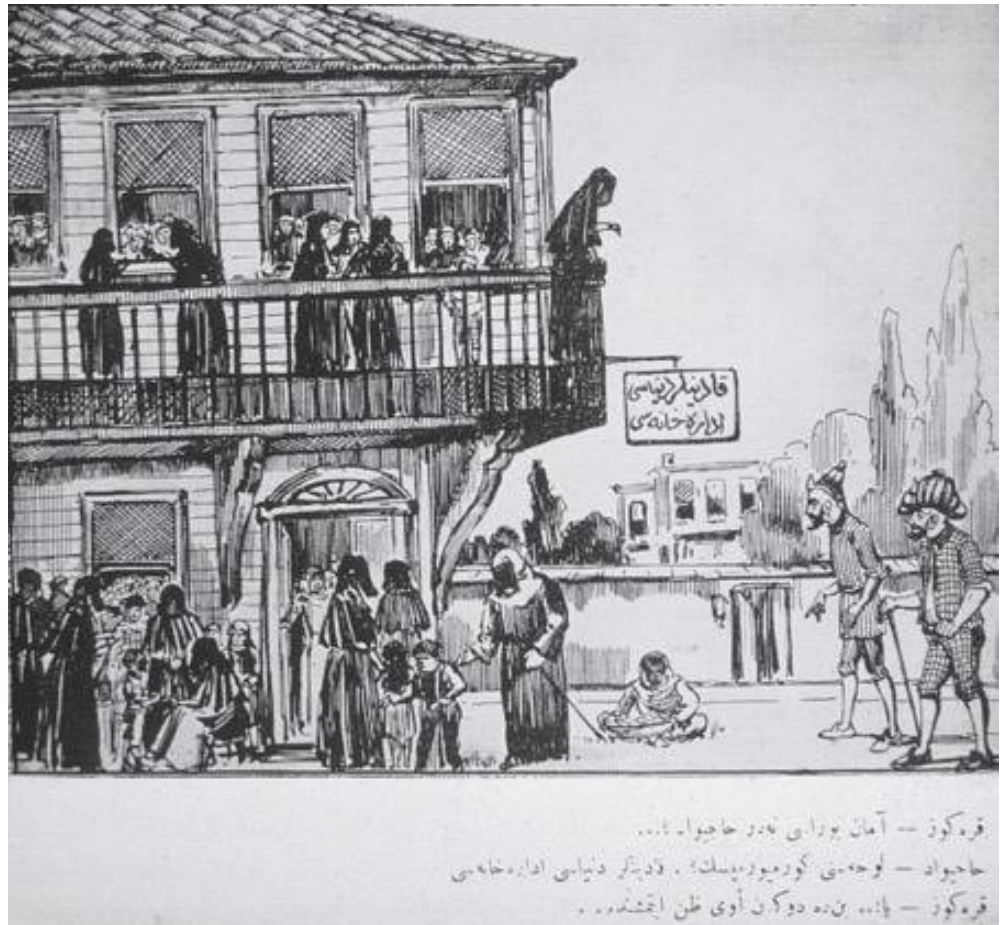 قادینلر دنیاسی
اداره‌خانه‌سی
قره‌كوز — آمان بوراسی نه‌در حاجیواد ؟...
حاجیواد — لوحه‌سنی كورمیورمیسك؟ . قادینلر دنیاسی اداره‌خانه‌سی
قره‌كوز — یا!.. بن‌ده دوكون أوی ظن ایتمشدم. .